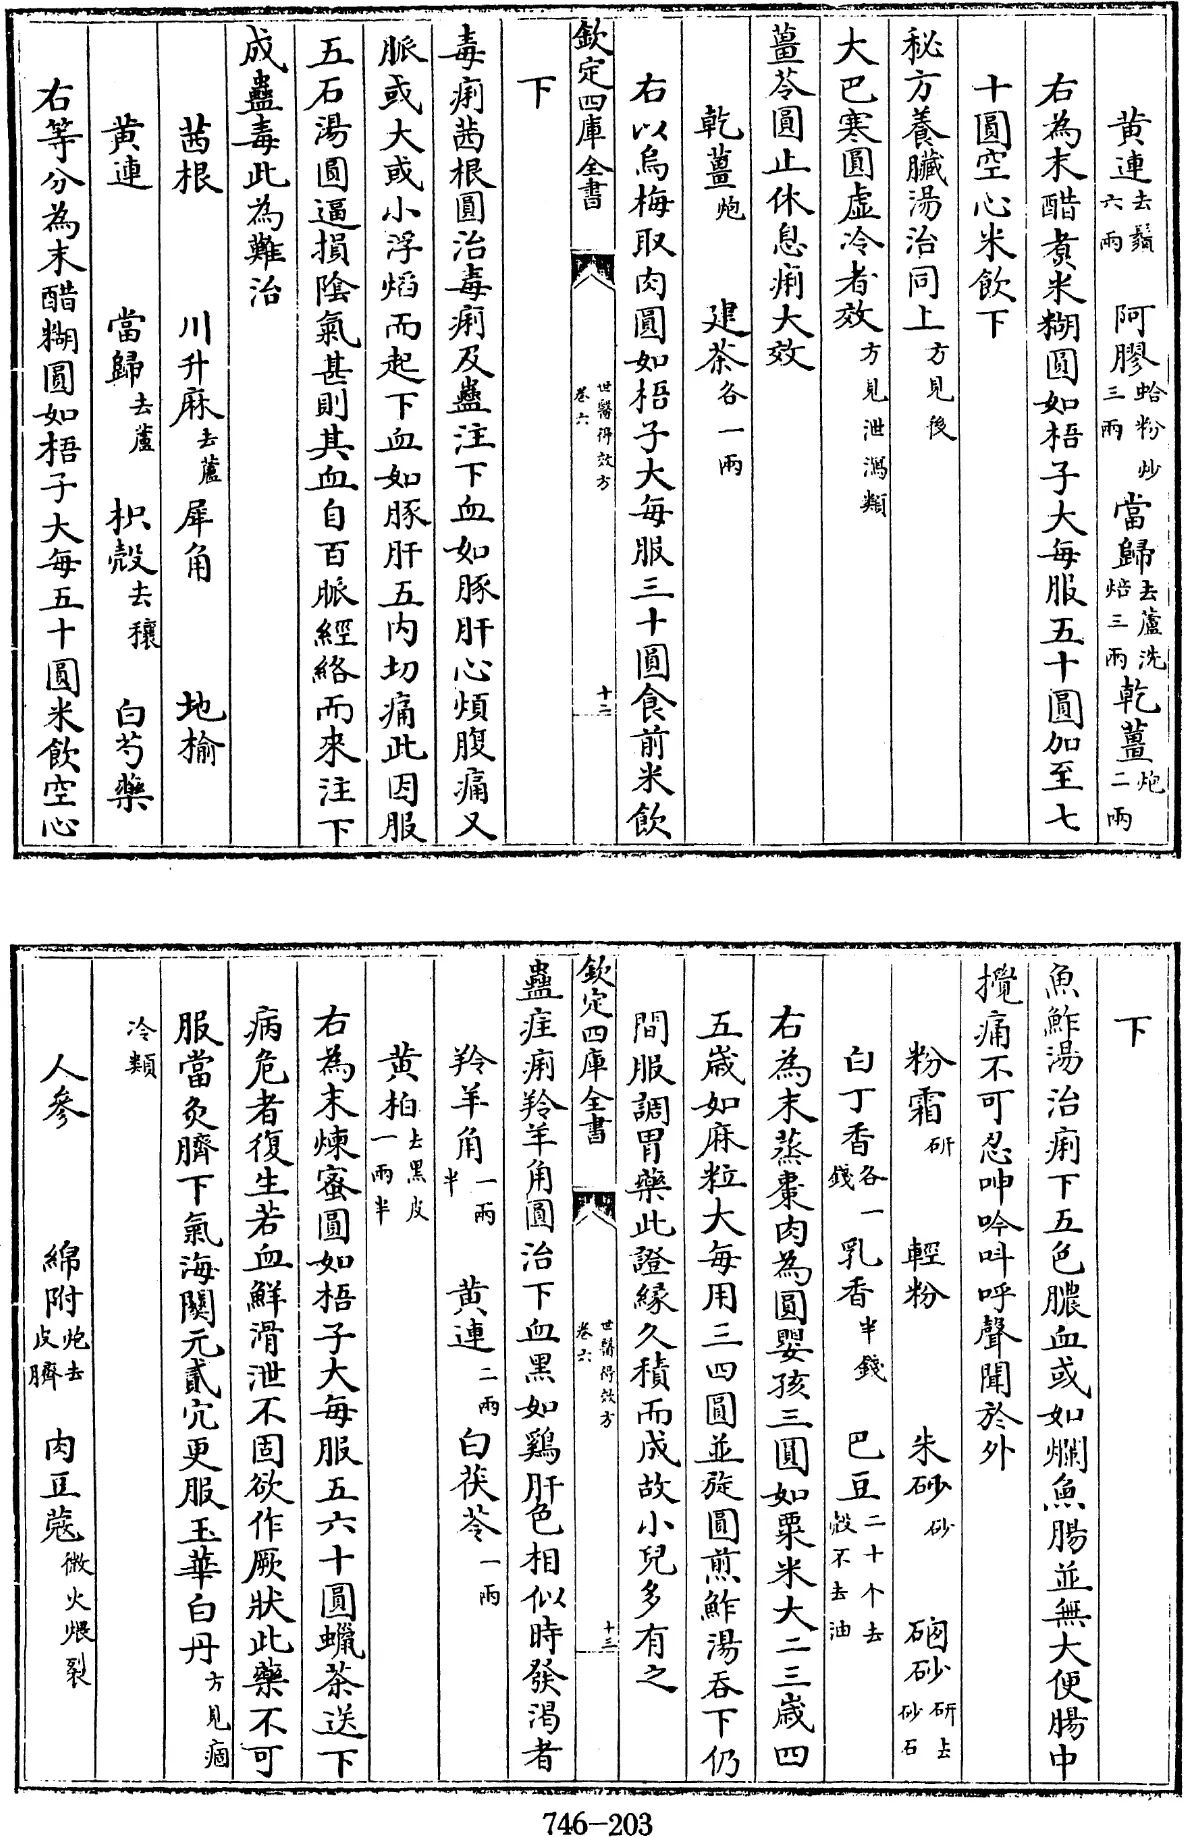 黄連去鬚六兩 阿膠蛤粉炒三兩 當歸去蘆洗焙三兩 乾薑炮二兩
右為末醋煮米糊圓如梧子大每服五十圓加至七
十圓空心米飲下
秘方養臟湯治同上方見後
大巴寒圓虛冷者效方見泄瀉類
薑苓圓止休息痢大效
乾薑炮 建茶各一兩
右以烏梅取肉圓如梧子大每服三十圓食前米飲
欽定四庫全書 世醫得效方 卷六 十二
下
毒痢茜根圓治毒痢及蠱注下血如豚肝心煩腹痛又
脈或大或小浮熖而起下血如豚肝五内切痛此因服
五石湯圓逼損陰氣甚則其血自百脈經絡而來注下
成蠱毒此為難治
茜根 川升麻去蘆 犀角 地榆
黄連 當歸去蘆 枳殼去穰 白芍藥
右等分為末醋糊圓如梧子大每五十圓米飲空心
下
魚鮓湯治痢下五色膿血或如爛魚腸並無大便腸中
攪痛不可忍呻吟呌呼聲聞於外
粉霜研 輕粉 朱砂砂 硇砂研去砂石
白丁香各一錢 乳香半錢 巴豆二十个去殼不去油
右為末蒸棗肉為圓嬰孩三圓如粟米大二三歲四
五歲如麻粒大每用三四圓並旋圓煎鮓湯吞下仍
間服調胃藥此證緣久積而成故小兒多有之
欽定四庫全書 世醫得效方 卷六 十三
蠱疰痢羚羊角圓治下血黑如鷄肝色相似時發渴者
羚羊角一兩半 黄連二兩 白茯苓一兩
黄柏去黑皮一兩半
右為末煉蜜圓如梧子大每服五六十圓蠟茶送下
病危者復生若血鮮滑泄不固欲作厥狀此藥不可
服當灸臍下氣海關元貳穴更服玉華白丹方見痼
冷類
人參 綿附炮去皮臍 肉豆蔻微火煨裂
746-203